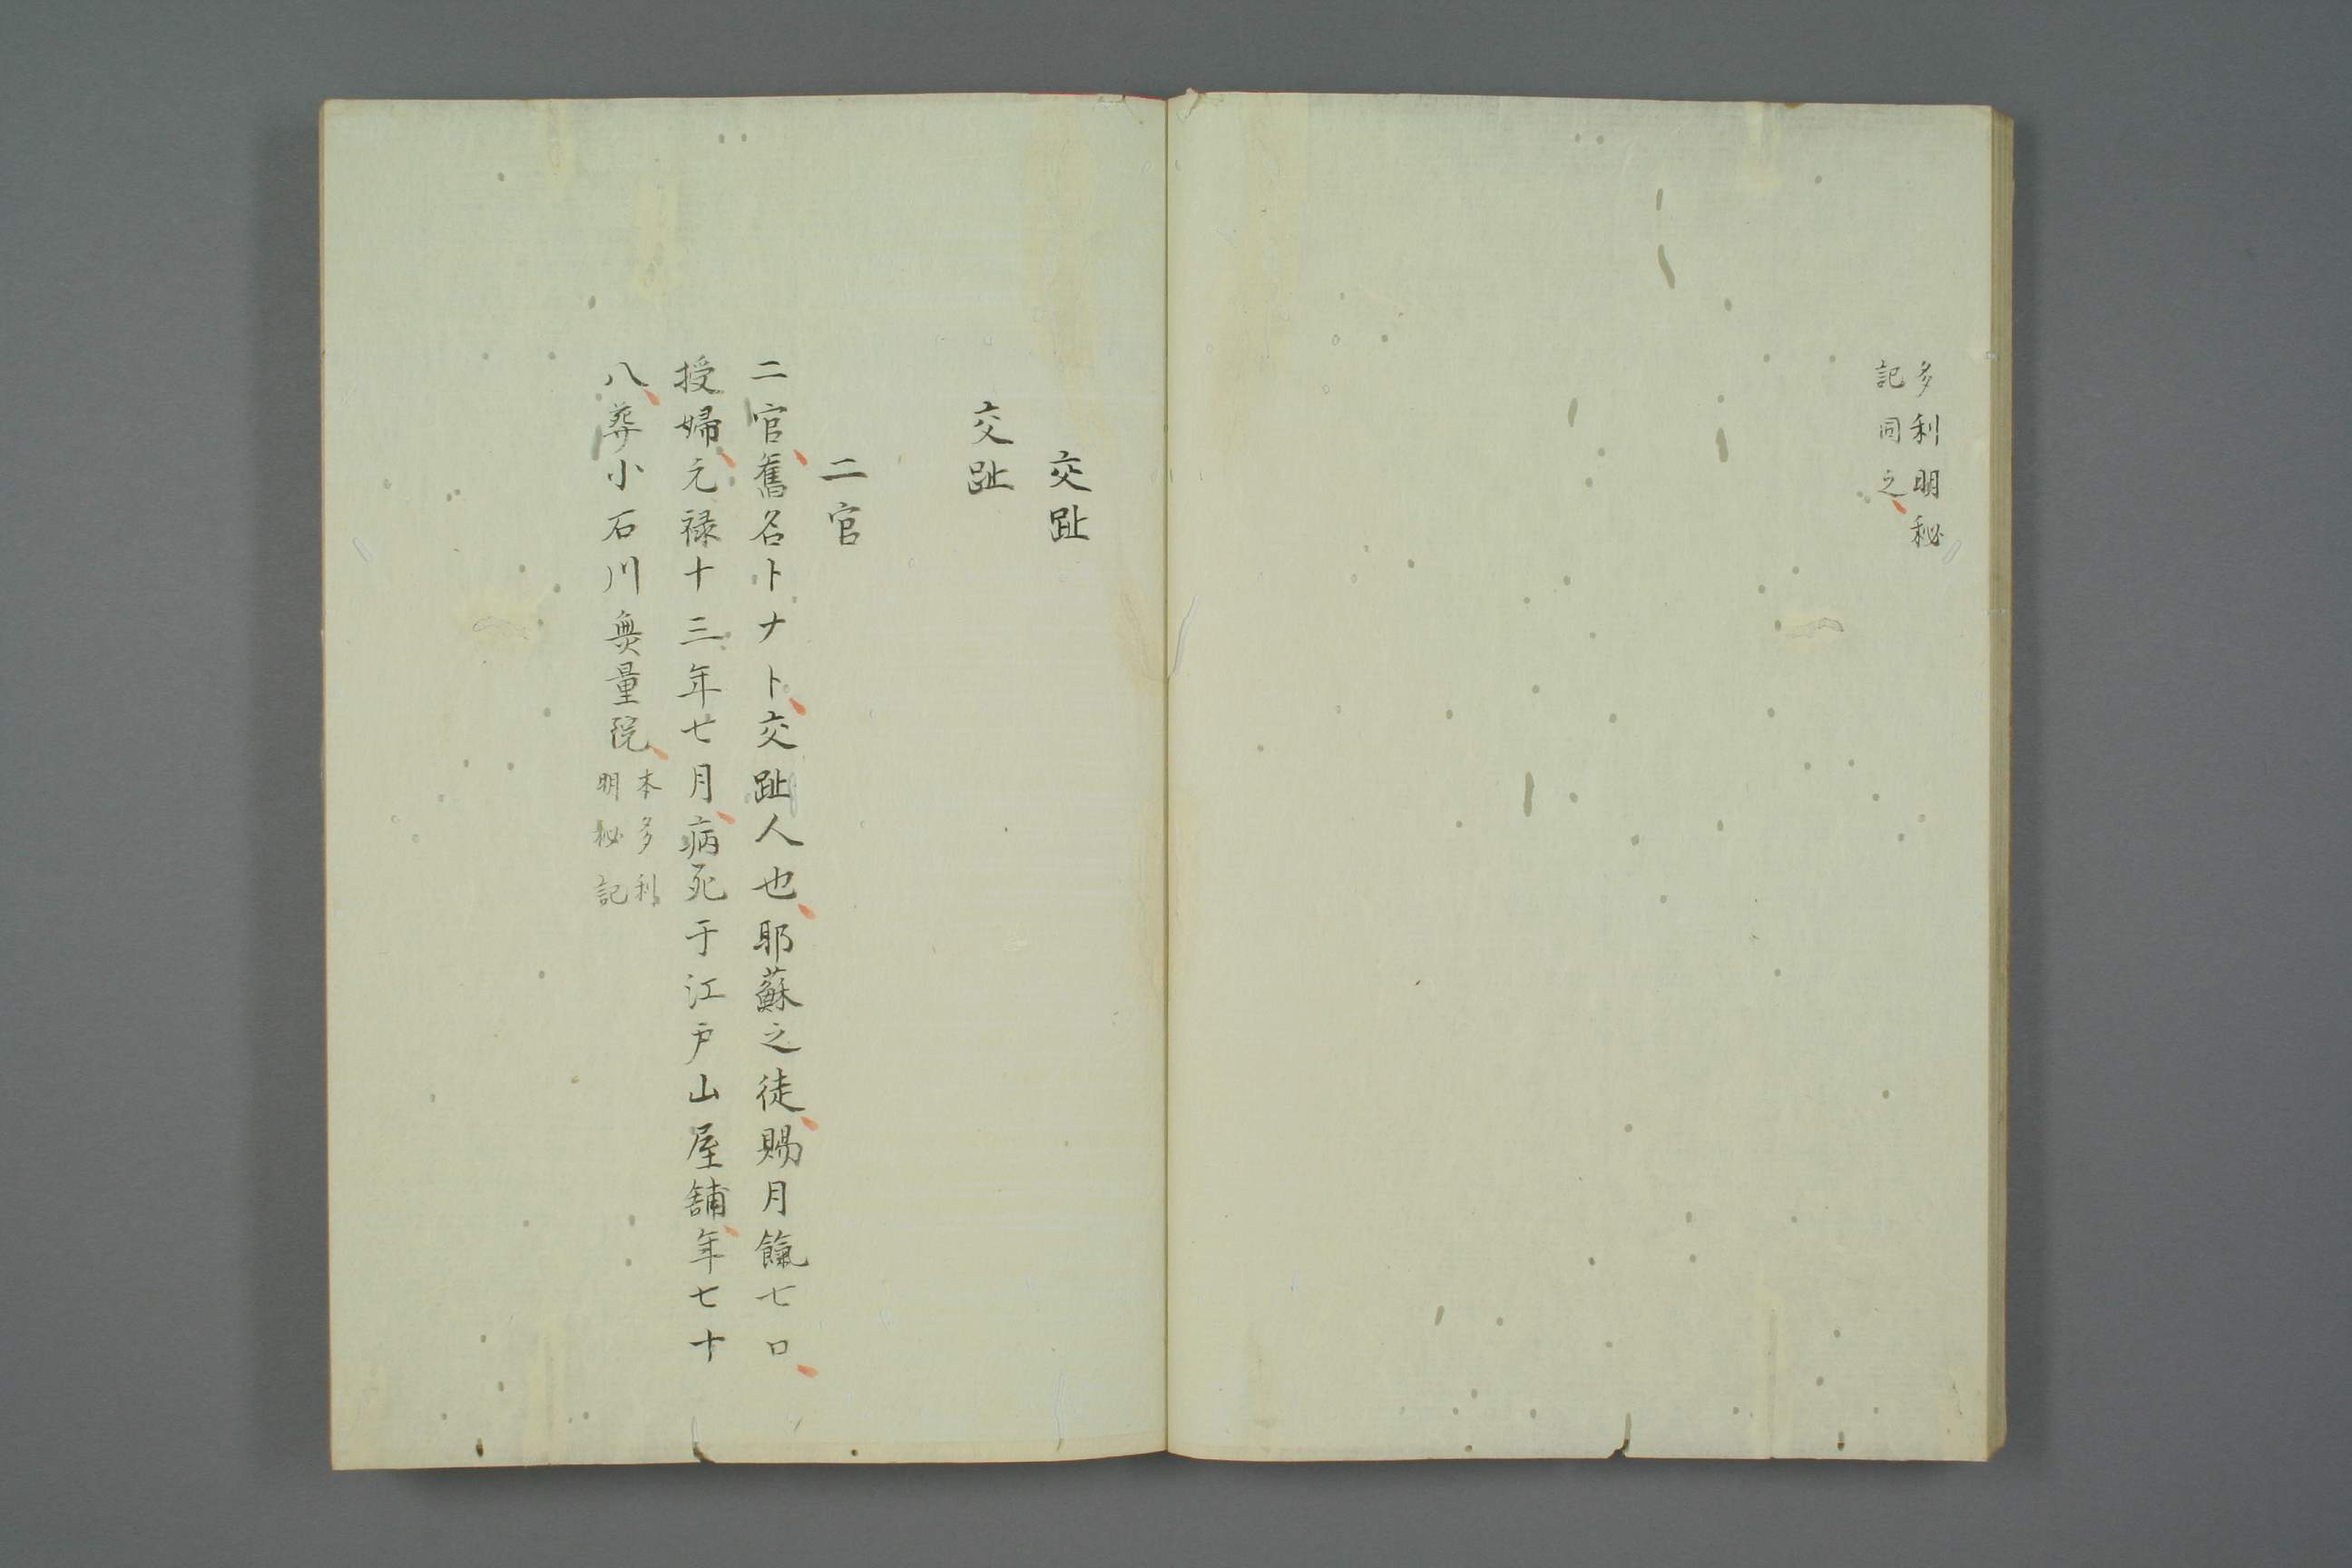 多利明秘
記同之
交趾
交趾
二官
二官舊名トナト交趾人也耶蘇之徒賜月餼七口
授婦元禄十三年七月病死于江戸山屋舗年七十
八葬小石川無量院
本多利
明秘記